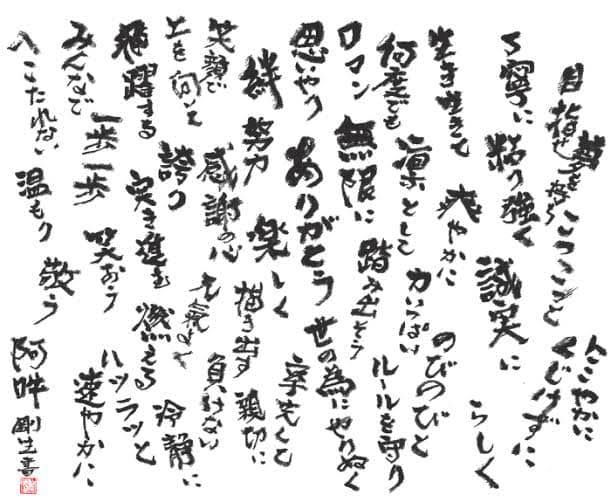 目指せ
夢を追い
こつこつと
にこやかに
くじけずに
丁寧に
粘り強く
誠実に
らしく
生き生きて
爽やかに
のびのびと
何度でも
凛として
力いっぱい
ルールを守り
ロマン
無限に
踏み出そう
世の為にやりぬく
思いやり
ありがとう
幸せと
絆
努力
楽しく
描き出す
親切に
笑顔で
上を向いて
感謝の心
元気よく
負けない
誇り
冷静に
飛躍する
突き進む
燃える
速やかに
みんなで
一歩一歩
笑おう
ハツラツと
へこたれない
温もり
敬う
阿吽
剛生書